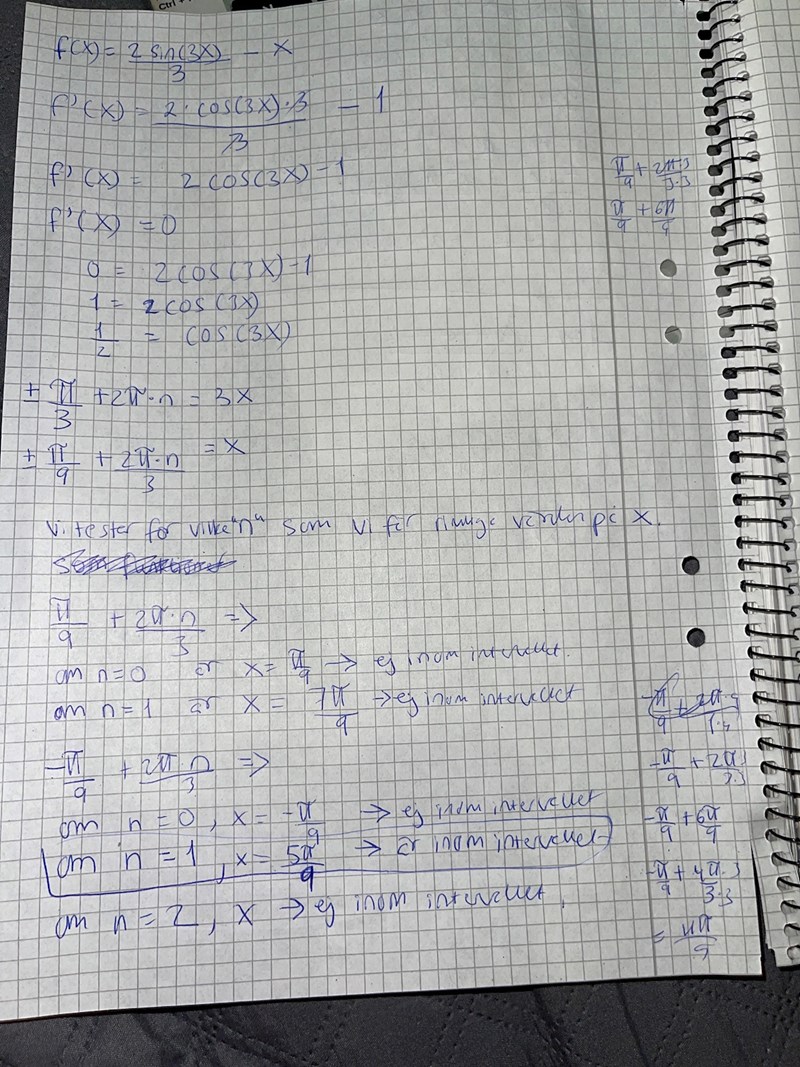 Ctrl
f(x) = 2 sin(3x)/3 - x
f'(x) = 2·cos(3x)·3/3 - 1
f'(x) = 2cos(3x)-1
f'(x) = 0
0 = 2cos(3x)-1
1 = 2cos(3x)
1/2 = cos(3x)
± π/3 + 2π·n = 3x
± π/9 + 2π·n/3 = x
Vi tester för vilka "n" som vi får rimliga värden på x.
π/9 + 2π·n/3 =>
om n=0 är x= π/9 → ej inom intervallet.
om n=1 är x= 7π/9 → ej inom intervallet
-π/9 + 2π·n/3 =>
om n=0, x= -π/9 → ej inom intervallet
om n=1, x= 5π/9 → är inom intervallet
om n=2, x → ej inom intervallet.
π/9 + 2π·3/3·3
π/9 + 6π/9
-π/9 + 2π·3/3·3
-π/9 + 6π/9
-π/9 + 4π·3/3·3
= 11π/9